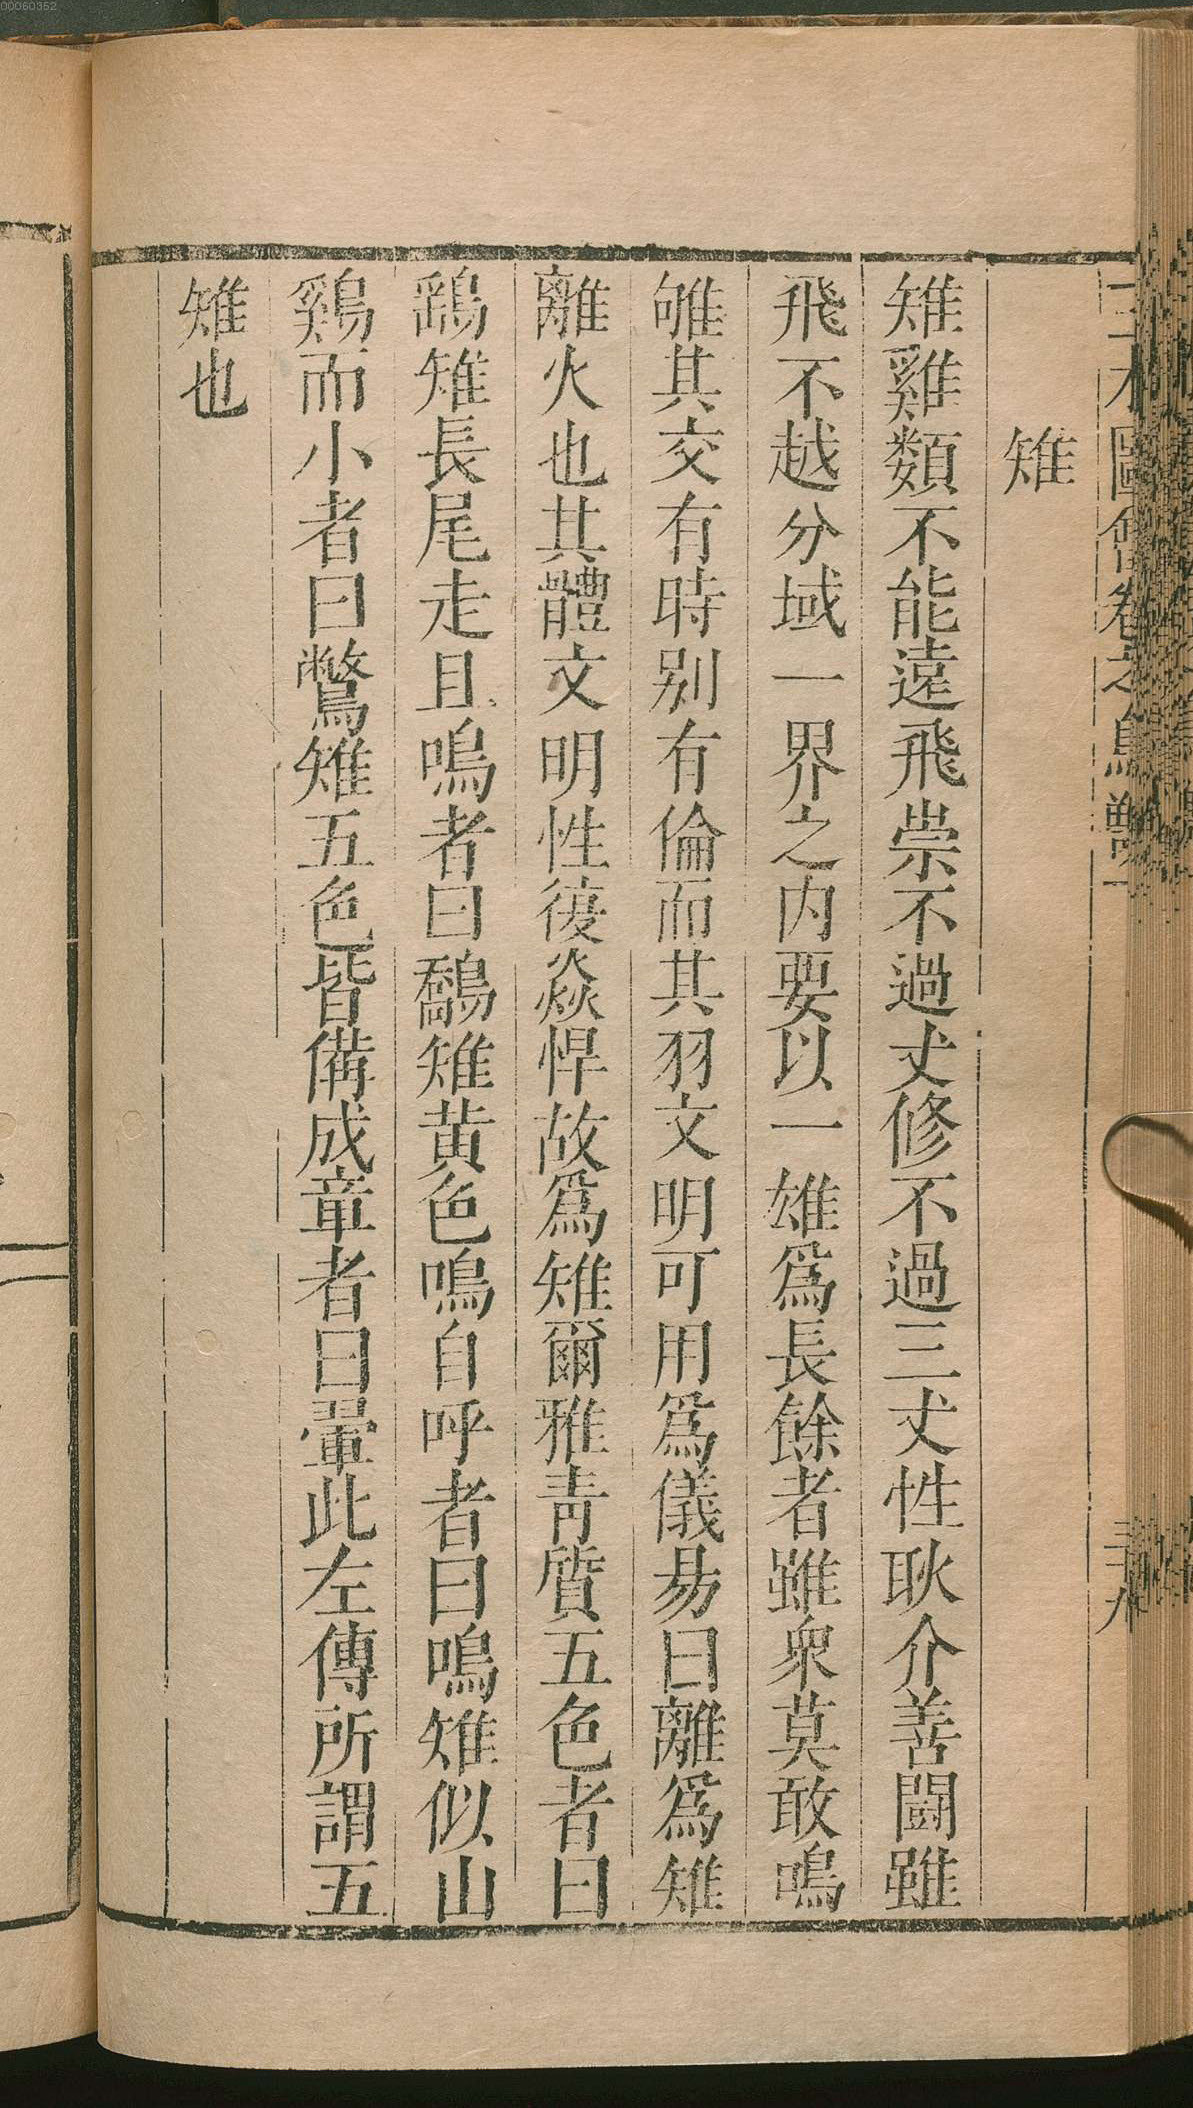 00060352
雉
雉雞類不能遠飛崇不過丈修不過三丈性耿介善鬪雖
飛不越分域一界之内要以一雄爲長餘者雖衆莫敢鳴
雊其交有時别有倫而其羽文明可用爲儀易曰離爲雉
離火也其體文明性復焱悍故爲雉爾雅青質五色者曰
鷂雉長尾走且鳴者曰鷮雉黄色鳴自呼者曰鳴雉似山
鷄而小者曰鷩雉五色皆備成章者曰翬此左傳所謂五
雉也